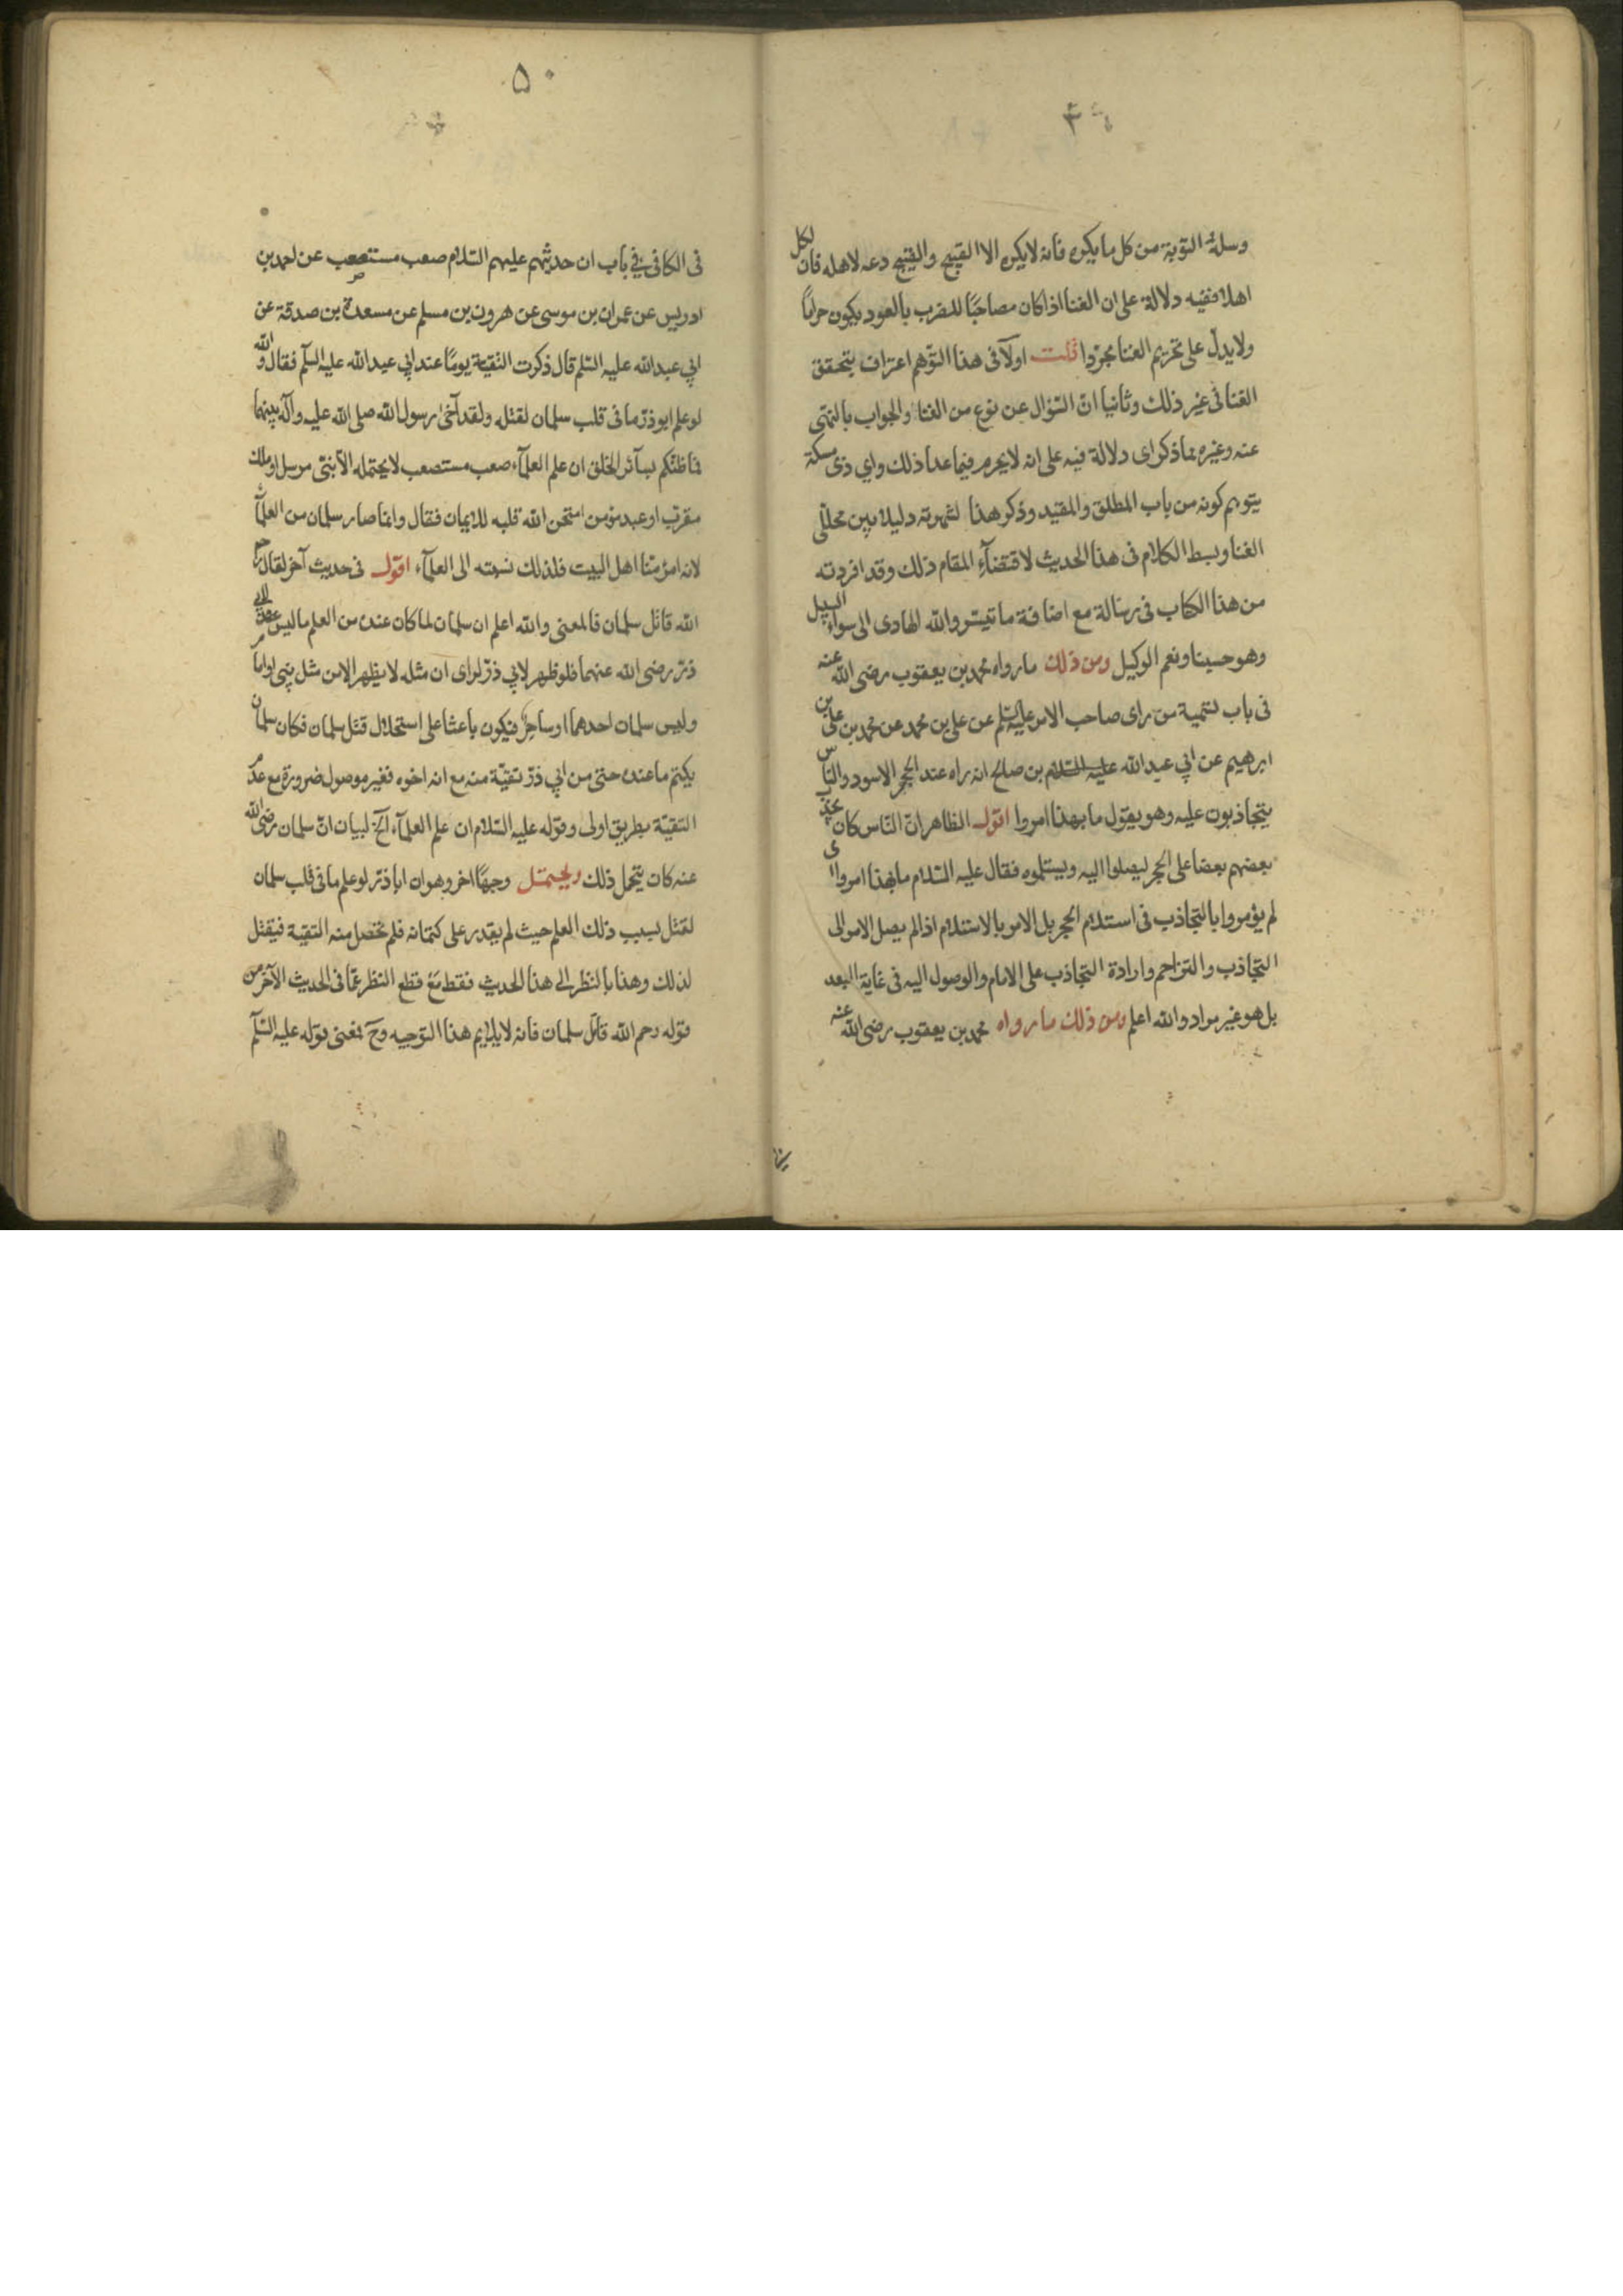 ۴۹
وسله التوبة من كل ما يكره فانه لا يكره الا القبيح والقبيح دعه لاهله فان لكل
اهلا ففيه دلالة على ان الغنا اذا كان مصاحبًا للضرب بالعود يكون حرامًا
ولا يدلّ على تحريم الغنا مجرّدا قلت اولًا فى هذا التوهم اعتراف بتحقق
الغنا فى غير ذلك وثانيا انّ السّؤال عن نوع من الغنا والجواب بالنهى
عنه وغيره مما ذكر اى دلالة فيه على انه لا يحرم فيما عدا ذلك واي ذى مسكة
يتوهم كونه من باب المطلق والمقيد وذكر هذا لشهرته دليلا بين محللى
الغنا وبسط الكلام فى هذا الحديث لاقتضآء المقام ذلك وقد افردته
من هذا الكتاب فى رسالة مع اضافة ما تيسّر والله الهادى الى سواء السبيل
وهو حسبنا ونعم الوكيل ومن ذلك ما رواه محمد بن يعقوب رضى الله عنه
فى باب تسمية من راى صاحب الامر عليه السّلم عن على بن محمد عن محمد بن على بن
ابرهيم عن ابي عبد الله عليه السّلام بن صالح انه راه عند الحجر الاسود والنّاس
يتجاذبون عليه وهو يقول ما بهذا امروا اقول الظاهر انّ النّاس كان يجذب
بعضهم بعضا على الحجر ليصلوا اليه ويستلموه فقال عليه السّلام ما بهذا امروا اى
لم يؤمروا بالتجاذب فى استلام الحجر بل الامر بالاستلام اذا لم يصل الامر الى
التجاذب والتزاحم وارادة التجاذب على الامام والوصول اليه فى غاية البعد
بل هو غير مراد والله اعلم ومن ذلك ما رواه محمد بن يعقوب رضى الله عنه
۵۰
فى الكافى في باب ان حديثهم عليهم السّلام صعب مستصعب عن احمد بن
ادريس عن عمران بن موسى عن هرون بن مسلم عن مسعدة بن صدقة عن
ابي عبد الله عليه السّلم قال ذكرت التّقيّة يومًا عند ابي عبد الله عليه السّلم فقال والله
لو علم ابو ذرّ ما فى قلب سلمان لقتله ولقد آخى رسول الله صلى الله عليه وآله بينهما
فما ظنّكم بسآئر الخلق ان علم العلمآء صعب مستصعب لا يحتمله الّا نبىّ مرسل او ملك
مقرّب او عبد مؤمن امتحن الله قلبه للايمان فقال وانما صار سلمان من العلمآء
لانه امرؤ منّا اهل البيت فلذلك نسبته الى العلمآء اقول فى حديث آخر لقال رحم
الله قاتل سلمان فالمعنى والله اعلم ان سلمان لما كان عنده من العلم ما ليس عند ابي
ذرّ رضى الله عنهما فلو ظهر لابي ذرّ لراى ان مثله لا يظهر الا من مثل نبى او امام
وليس سلمان احدهما او ساحر فيكون باعثا على استحلال قتل سلمان فكان سلمان
يكتم ما عنده حتى من ابي ذرّ تقيّة منه مع انه اخوه فغير موصول ضرورة مع عدم
التقيّة بطريق اولى وقوله عليه السّلام ان علم العلمآء الخ لبيان انّ سلمان رضى الله
عنه كان يتحمل ذلك ويحتمل وجهًا اخر وهو ان ابا ذرّ لو علم ما فى قلب سلمان
لقتل بسبب ذلك العلم حيث لم يقدر على كتمانه فلم تحصل منه التقية فيقتل
لذلك وهذا بالنظر الى هذا الحديث فقط مع قطع النظر عمّا فى الحديث الآخر من
قوله رحم الله قاتل سلمان فانه لا يلايم هذا التوجيه وحَ فمعنى قوله عليه السّلم